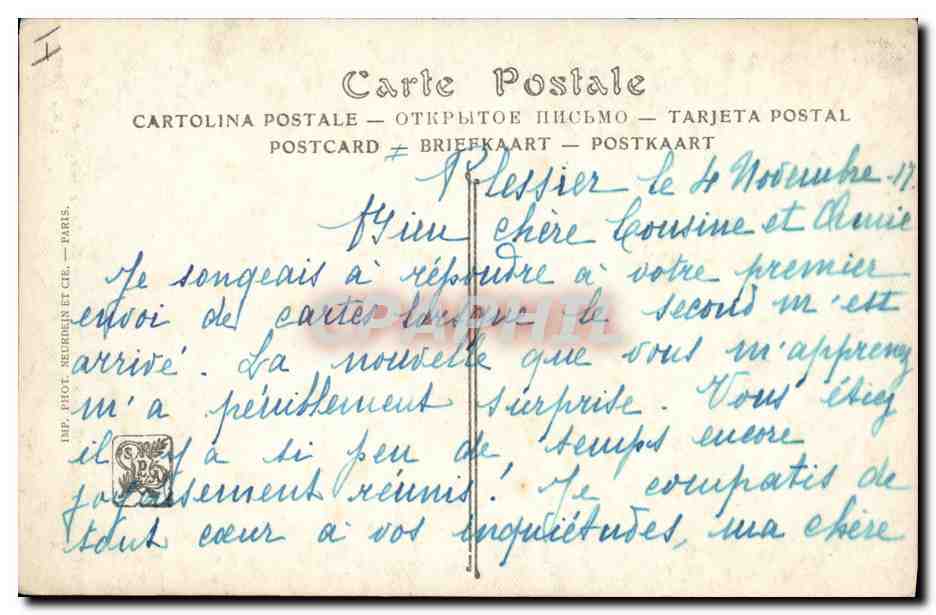 I
Carte Postale
CARTOLINA POSTALE — ОТКРЫТОЕ ПИСЬМО — TARJETA POSTAL
POSTCARD — BRIEFKAART — POSTKAART
Plessier le 4 Novembre 17.
Bien chère Cousine et Amie
Je songeais à répondre à votre premier
envoi de cartes lorsque le second m'est
arrivé. La nouvelle que vous m'apprenez
m'a péniblement surprise. Vous étiez
il y a si peu de temps encore
joyeusement réunis! Je compatis de
tout cœur à vos inquiétudes, ma chère
IMP. PHOT. NEURDEIN ET CIE. — PARIS.
CPAPHIL